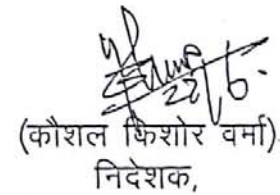 22/6.
(कौशल किशोर वर्मा)
निदेशक,